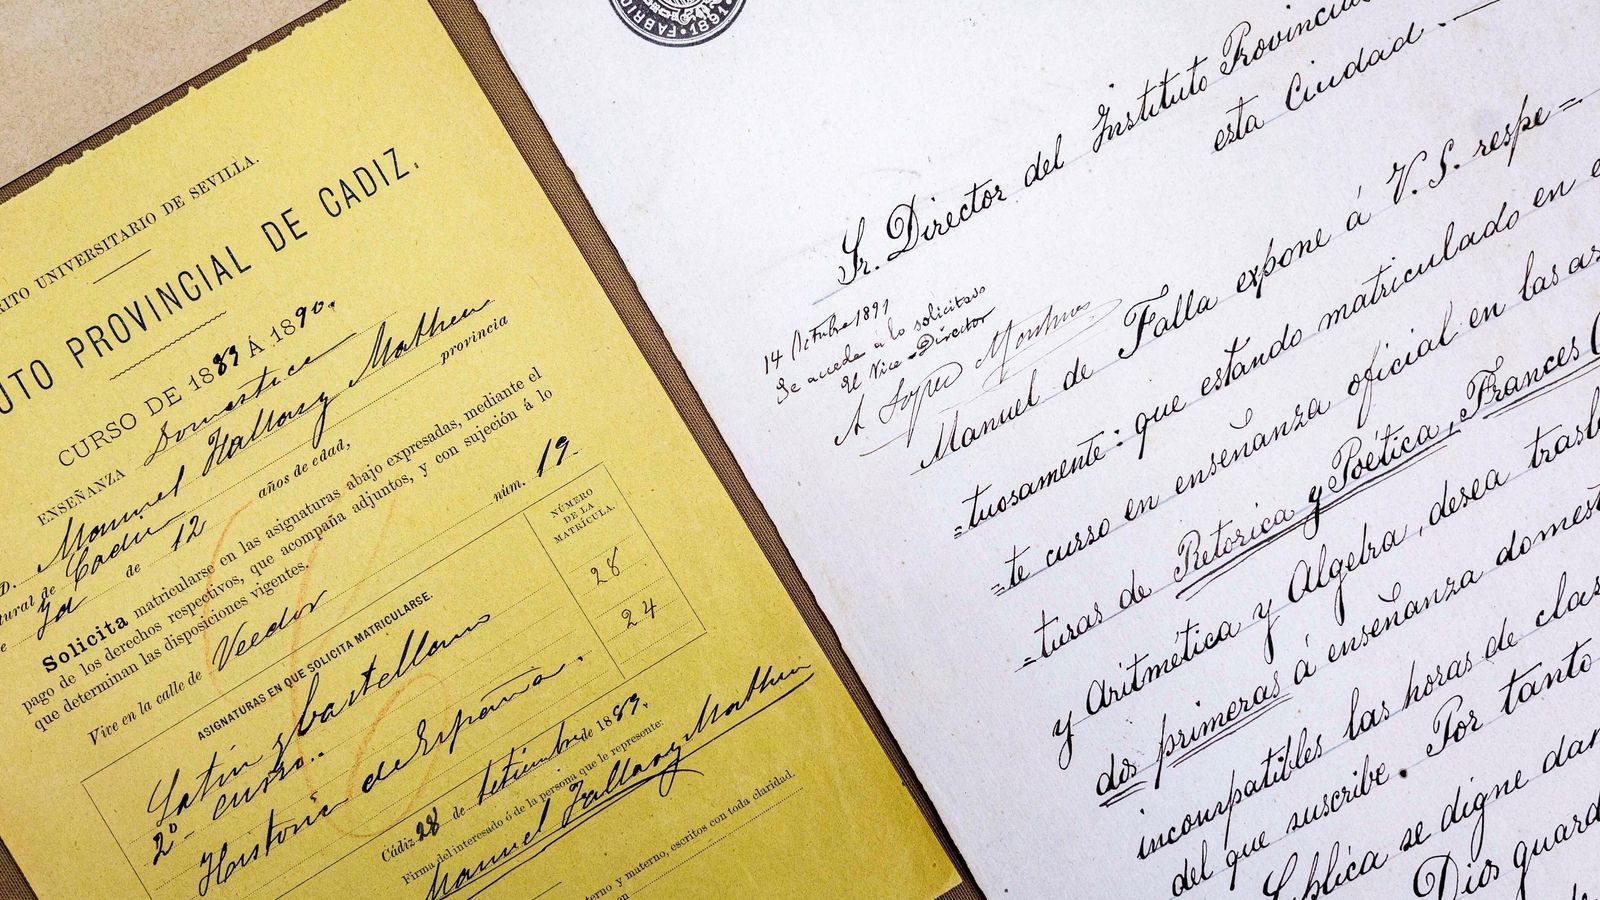 RITO UNIVERSITARIO DE SEVILLA.
UTO PROVINCIAL DE CADIZ.
CURSO DE 1889 Á 1890.
ENSEÑANZA Domestica
D. Manuel Fallasy Matheu
tural de Cadiz provincia
de 12 años de edad,
Solicita matricularse en las asignaturas abajo expresadas, mediante el
pago de los derechos respectivos, que acompaña adjuntos, y con sujeción á lo
que determinan las disposiciones vigentes.
Vive en la calle de Veedor núm. 19.
ASIGNATURAS EN QUE SOLICITA MATRICULARSE.
NÚMERO
DE LA
MATRÍCULA.
Latin y Castellano
2º curso..
28
Historia de España.
24
Cádiz 28 de Setiembre de 1889.
Firma del interesado ó de la persona que le represente:
Manuel Fallasy Matheu
terno y materno, escritos con toda claridad.
FABRI 1891.
Sr. Director del Instituto Provincial
esta Ciudad.
14 Octubre 1891
Se accede a lo solicitado
El Vice-Director
Manuel de Falla expone á V. S. respe=
=tuosamente: que estando matriculado en e
=te curso en enseñanza oficial en las as
=turas de Retorica y Poética, Frances (
y Aritmética y Algebra, desea trasl
dos primeras á enseñanza domest
incompatibles las horas de clas
del que suscribe. Por tanto
Suplica se digne dar
Dios guard